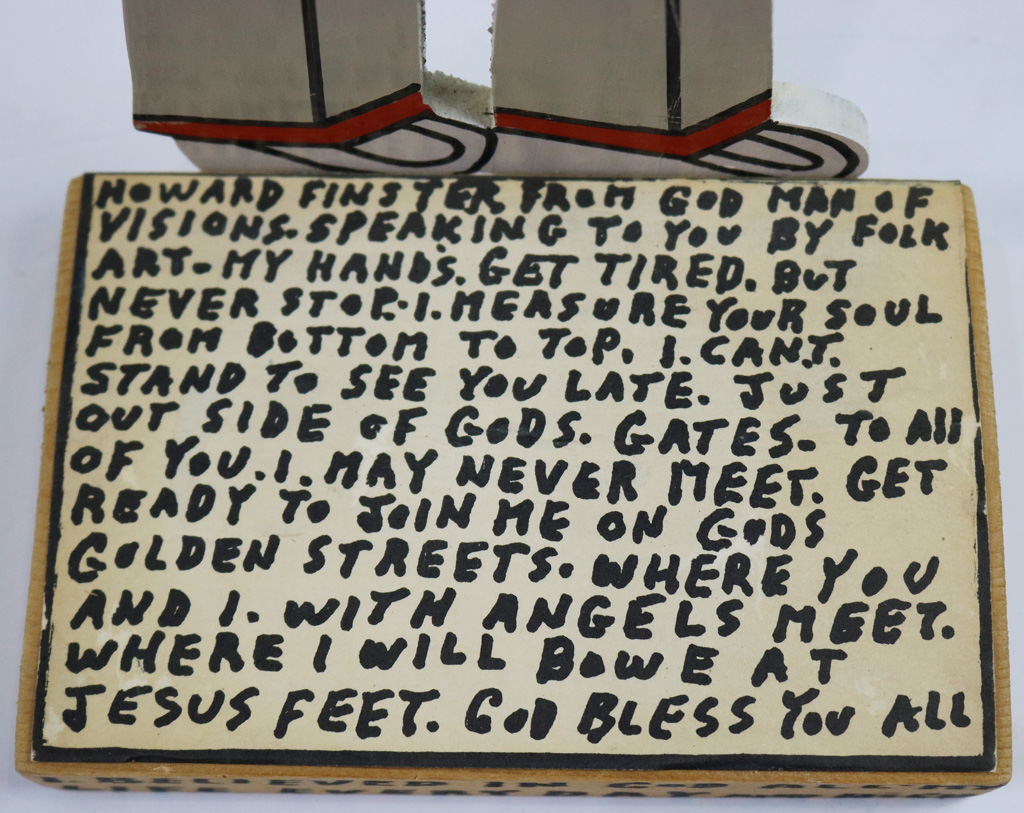 HOWARD FINSTER FROM GOD MAN OF
VISIONS.SPEAKING TO YOU BY FOLK
ART-MY HANDS. GET TIRED. BUT
NEVER STOP.I.MEASURE YOUR SOUL
FROM BOTTOM TO TOP. I.CAN.T.
STAND TO SEE YOU LATE. JUST
OUT SIDE OF GODS. GATES. TO All
OF YOU.I.MAY NEVER MEET. GET
READY TO JOIN ME ON GODS
GOLDEN STREETS. WHERE YOU
AND I. WITH ANGELS MEET.
WHERE I WILL BOWE AT
JESUS FEET. GOD BLESS YOU ALL
I BELIEVED IN GOD ALL M
LIFE EVERYDAY